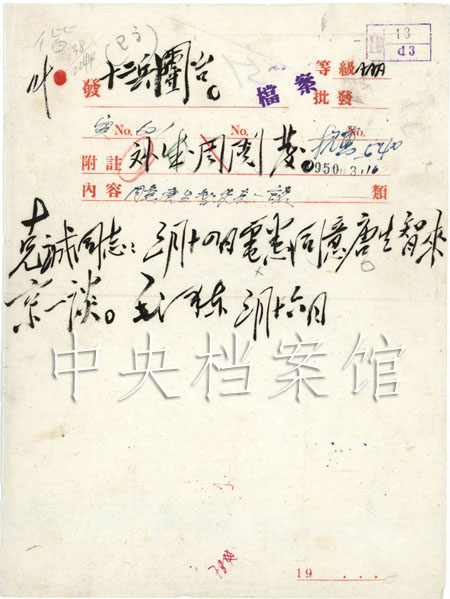 13
d3
發 十二兵團台。
等級 AAA
檔案
批發
No.
No.
No.
附註 刘 周
1950 3.16
內容 同意唐生智来京一談
類
克誠同志:三月十四日電悉,同意唐生智來
京一谈。毛泽东 三月十六日
中央档案馆
19